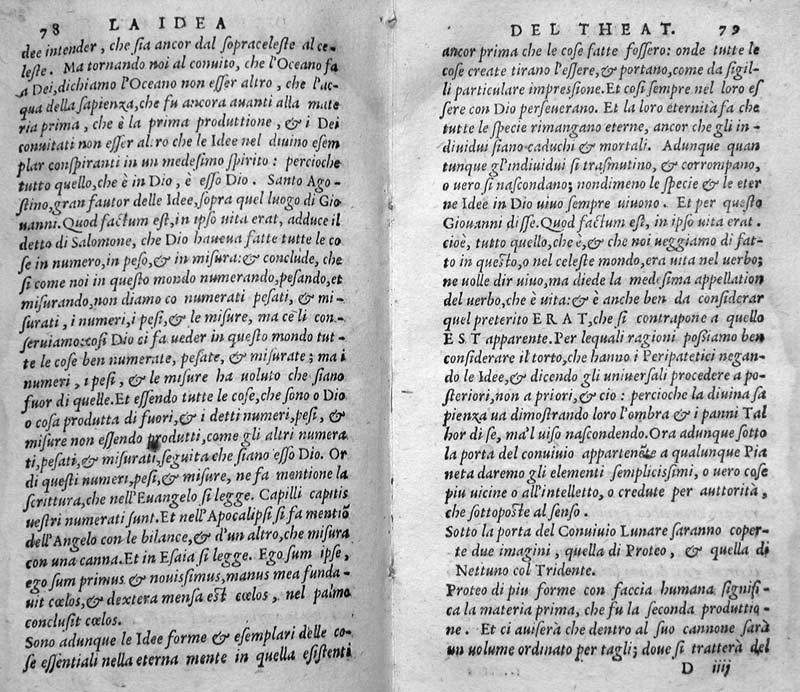 78 LA IDEA
dee intender, che sia ancor dal sopraceleste al ce-
leste. Ma tornando noi al conuito, che l'Oceano fa
a Dei, dichiamo l'Oceano non esser altro, che l'ac-
qua della sapienza, che fu ancora auanti alla mate
ria prima, che è la prima produttione, & i Dei
conuitati non esser altro che le Idee nel diuino esem
plar conspiranti in un medesimo spirito: percioche
tutto quello, che è in Dio, è esso Dio. Santo Ago-
stino, gran fautor delle Idee, sopra quel luogo di Gio
uanni. Quod factum est, in ipso uita erat, adduce il
detto di Salomone, che Dio haueua fatte tutte le co
se in numero, in peso, & in misura: & conclude, che
si come noi in questo mondo numerando, pesando, et
misurando, non diamo co numerati pesati, & mi-
surati, i numeri, i pesi, & le misure, ma ce li con-
seruiamo: cosi Dio ci fa ueder in questo mondo tut-
te le cose ben numerate, pesate, & misurate; ma i
numeri, i pesi, & le misure ha uoluto che siano
fuor di quelle. Et essendo tutte le cose, che sono o Dio
o cosa produtta di fuori, & i detti numeri, pesi, &
misure non essendo produtti, come gli altri numera
ti, pesati, & misurati, seguita che siano esso Dio. Or
di questi numeri, pesi, & misure, ne fa mentione la
scrittura, che nell'Euangelo si legge. Capilli capitis
uestri numerati sunt. Et nell'Apocalipsi si fa mentiõ
dell'Angelo con le bilance, & d'un altro, che misura
con una canna. Et in Esaia si legge. Ego sum ipse,
ego sum primus & nouissimus, manus mea funda-
uit cœlos, & dextera mensa est cœlos, nel palmo
conclusit cœlos.
Sono adunque le Idee forme & esemplari delle co-
se essentiali nella eterna mente in quella esistenti
DEL THEAT. 79
ancor prima che le cose fatte fossero: onde tutte le
cose create tirano l'essere, & portano, come da sigil-
li particulare impressione. Et cosi sempre nel loro es
sere con Dio perseuerano. Et la loro eternità fa che
tutte le specie rimangano eterne, ancor che gli in-
diuidui siano caduchi & mortali. Adunque quan
tunque gl'indiuidui si trasmutino, & corrompano,
o uero si nascondano; nondimeno le specie & le eter
ne Idee in Dio uiuo sempre uiuono. Et per questo
Giouanni disse. Quod factum est, in ipso uita erat.
cioè, tutto quello, che è, & che noi ueggiamo di fat-
to in questo, o nel celeste mondo, era uita nel uerbo;
ne uolle dir uiuo, ma diede la medesima appellation
del uerbo, che è uita: & è anche ben da considerar
quel preterito ERAT, che si contrapone a quello
EST apparente. Per lequali ragioni possiamo ben
considerare il torto, che hanno i Peripatetici negan-
do le Idee, & dicendo gli uniuersali procedere a po-
steriori, non a priori, & cio: percioche la diuina sa
pienza ua dimostrando loro l'ombra & i panni Tal
hor di se, ma'l uiso nascondendo. Ora adunque sotto
la porta del conuiuio appartenẽte a qualunque Pia
neta daremo gli elementi semplicissimi, o uero cose
piu uicine o all'intelletto, o credute per auttorità,
che sottoposte al senso.
Sotto la porta del Conuiuio Lunare saranno coper-
te due imagini, quella di Proteo, & quella di
Nettuno col Tridente.
Proteo di piu forme con faccia humana signifi-
ca la materia prima, che fu la seconda produttio-
ne. Et ci auiserà che dentro al suo cannone sarà
un uolume ordinato per tagli; doue si tratterà del
D iiij